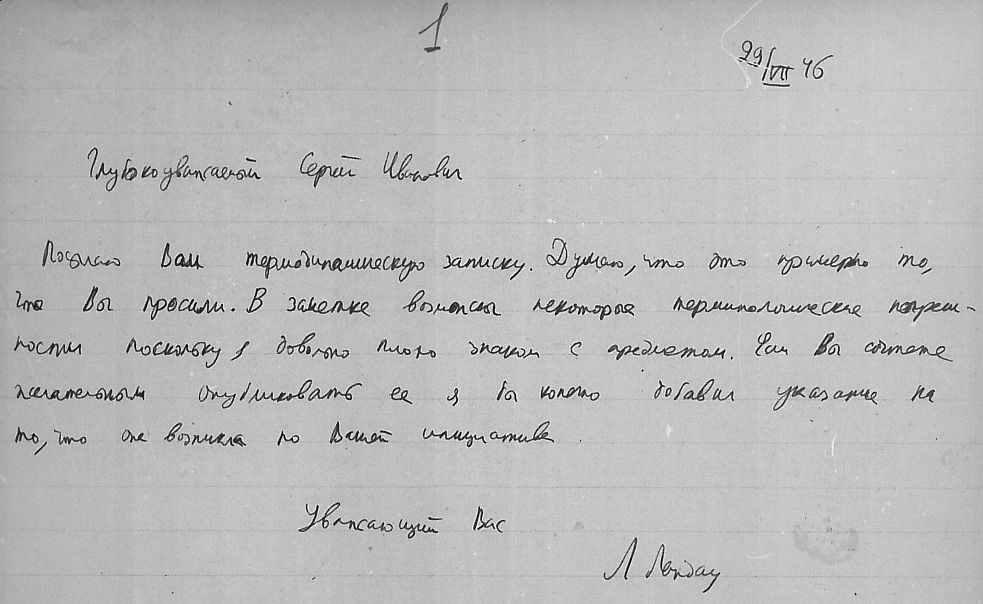 1
29/VII 46
Глубокоуважаемый Сергей Иванович
Посылаю Вам термодинамическую записку. Думаю, что это примерно то,
что Вы просили. В заметке возможны некоторые терминологические погреш-
ности поскольку я довольно плохо знаком с предметом. Если Вы сочтете
желательным опубликовать ее я бы конечно добавил указание на
то, что она возникла по Вашей инициативе
Уважающий Вас
Л Ландау